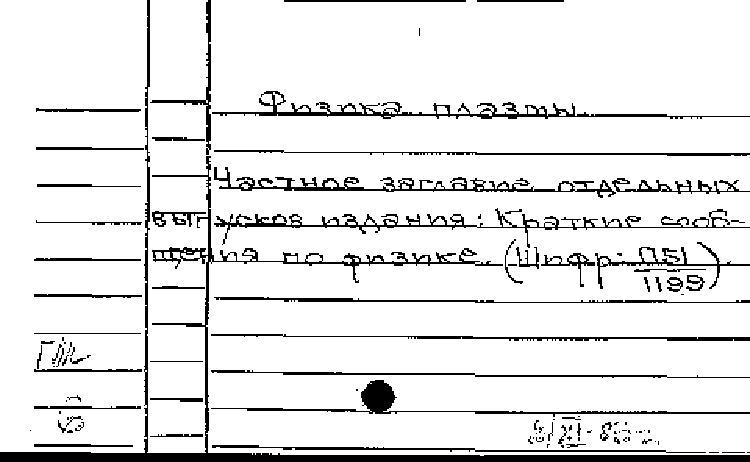 Физика плазмы
Частное заглавие отдельных
выпусков издания: Краткие сооб-
щения по физике. (Шифр: П51/1199).